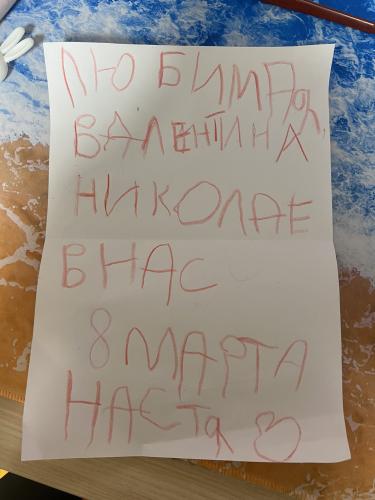 ЛЮБИМАЯ
ВАЛЕНТИНА
НИКОЛАЕ
ВНАС
8 МАРТА
НАСТЯ